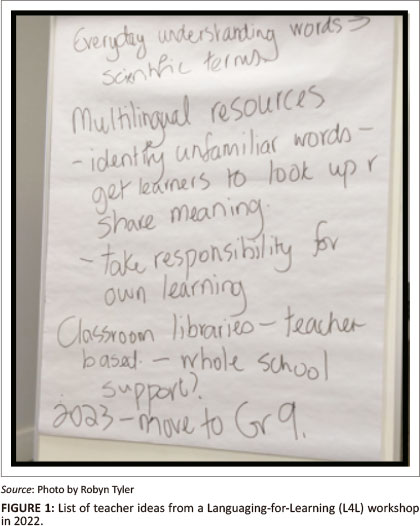 Everyday understanding words →
scientific terms
Multilingual resources
- identify unfamiliar words -
get learners to look up r
share meaning.
- take responsibility for
own learning
Classroom libraries - teacher
based. - whole school
support?
2023 - move to Gr 9.
Source: Photo by Robyn Tyler
FIGURE 1: List of teacher ideas from a Languaging-for-Learning (L4L) workshop
in 2022.